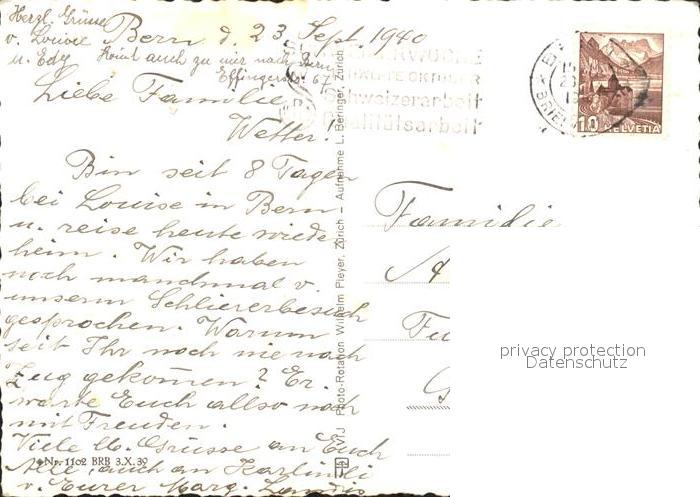 Herzl. Grüsse
v. Louise
u. Edy
Bern d. 23 Sept. 1940
Kömt auch zu mir nach Bern
Effingerstr. 67
Liebe Familie
Wetter!
Bin seit 8 Tagen
bei Louise in Bern
u. reise heute wieder
heim. Wir haben
noch manchmal v.
unserm Schliererbesuch
gesprochen. Warum
seit Ihr noch nie nach
Zug gekommen? Er-
warte Euch allso noch
mit Freuden.
Viele lb. Grüsse an Euch
Alle, auch an Karlindli
v. Eurer Marg. Landis
Nr. 1102 BRB 3.X.39
Photo-Rotation Wilhelm Pleyer, Zürich – Aufnahme L. Beringer, Zürich
SCHWEIZERWOCHE
OKTOBER
Schweizerarbeit
Qualitätsarbeit
10 HELVETIA
Familie
privacy protection
Datenschutz